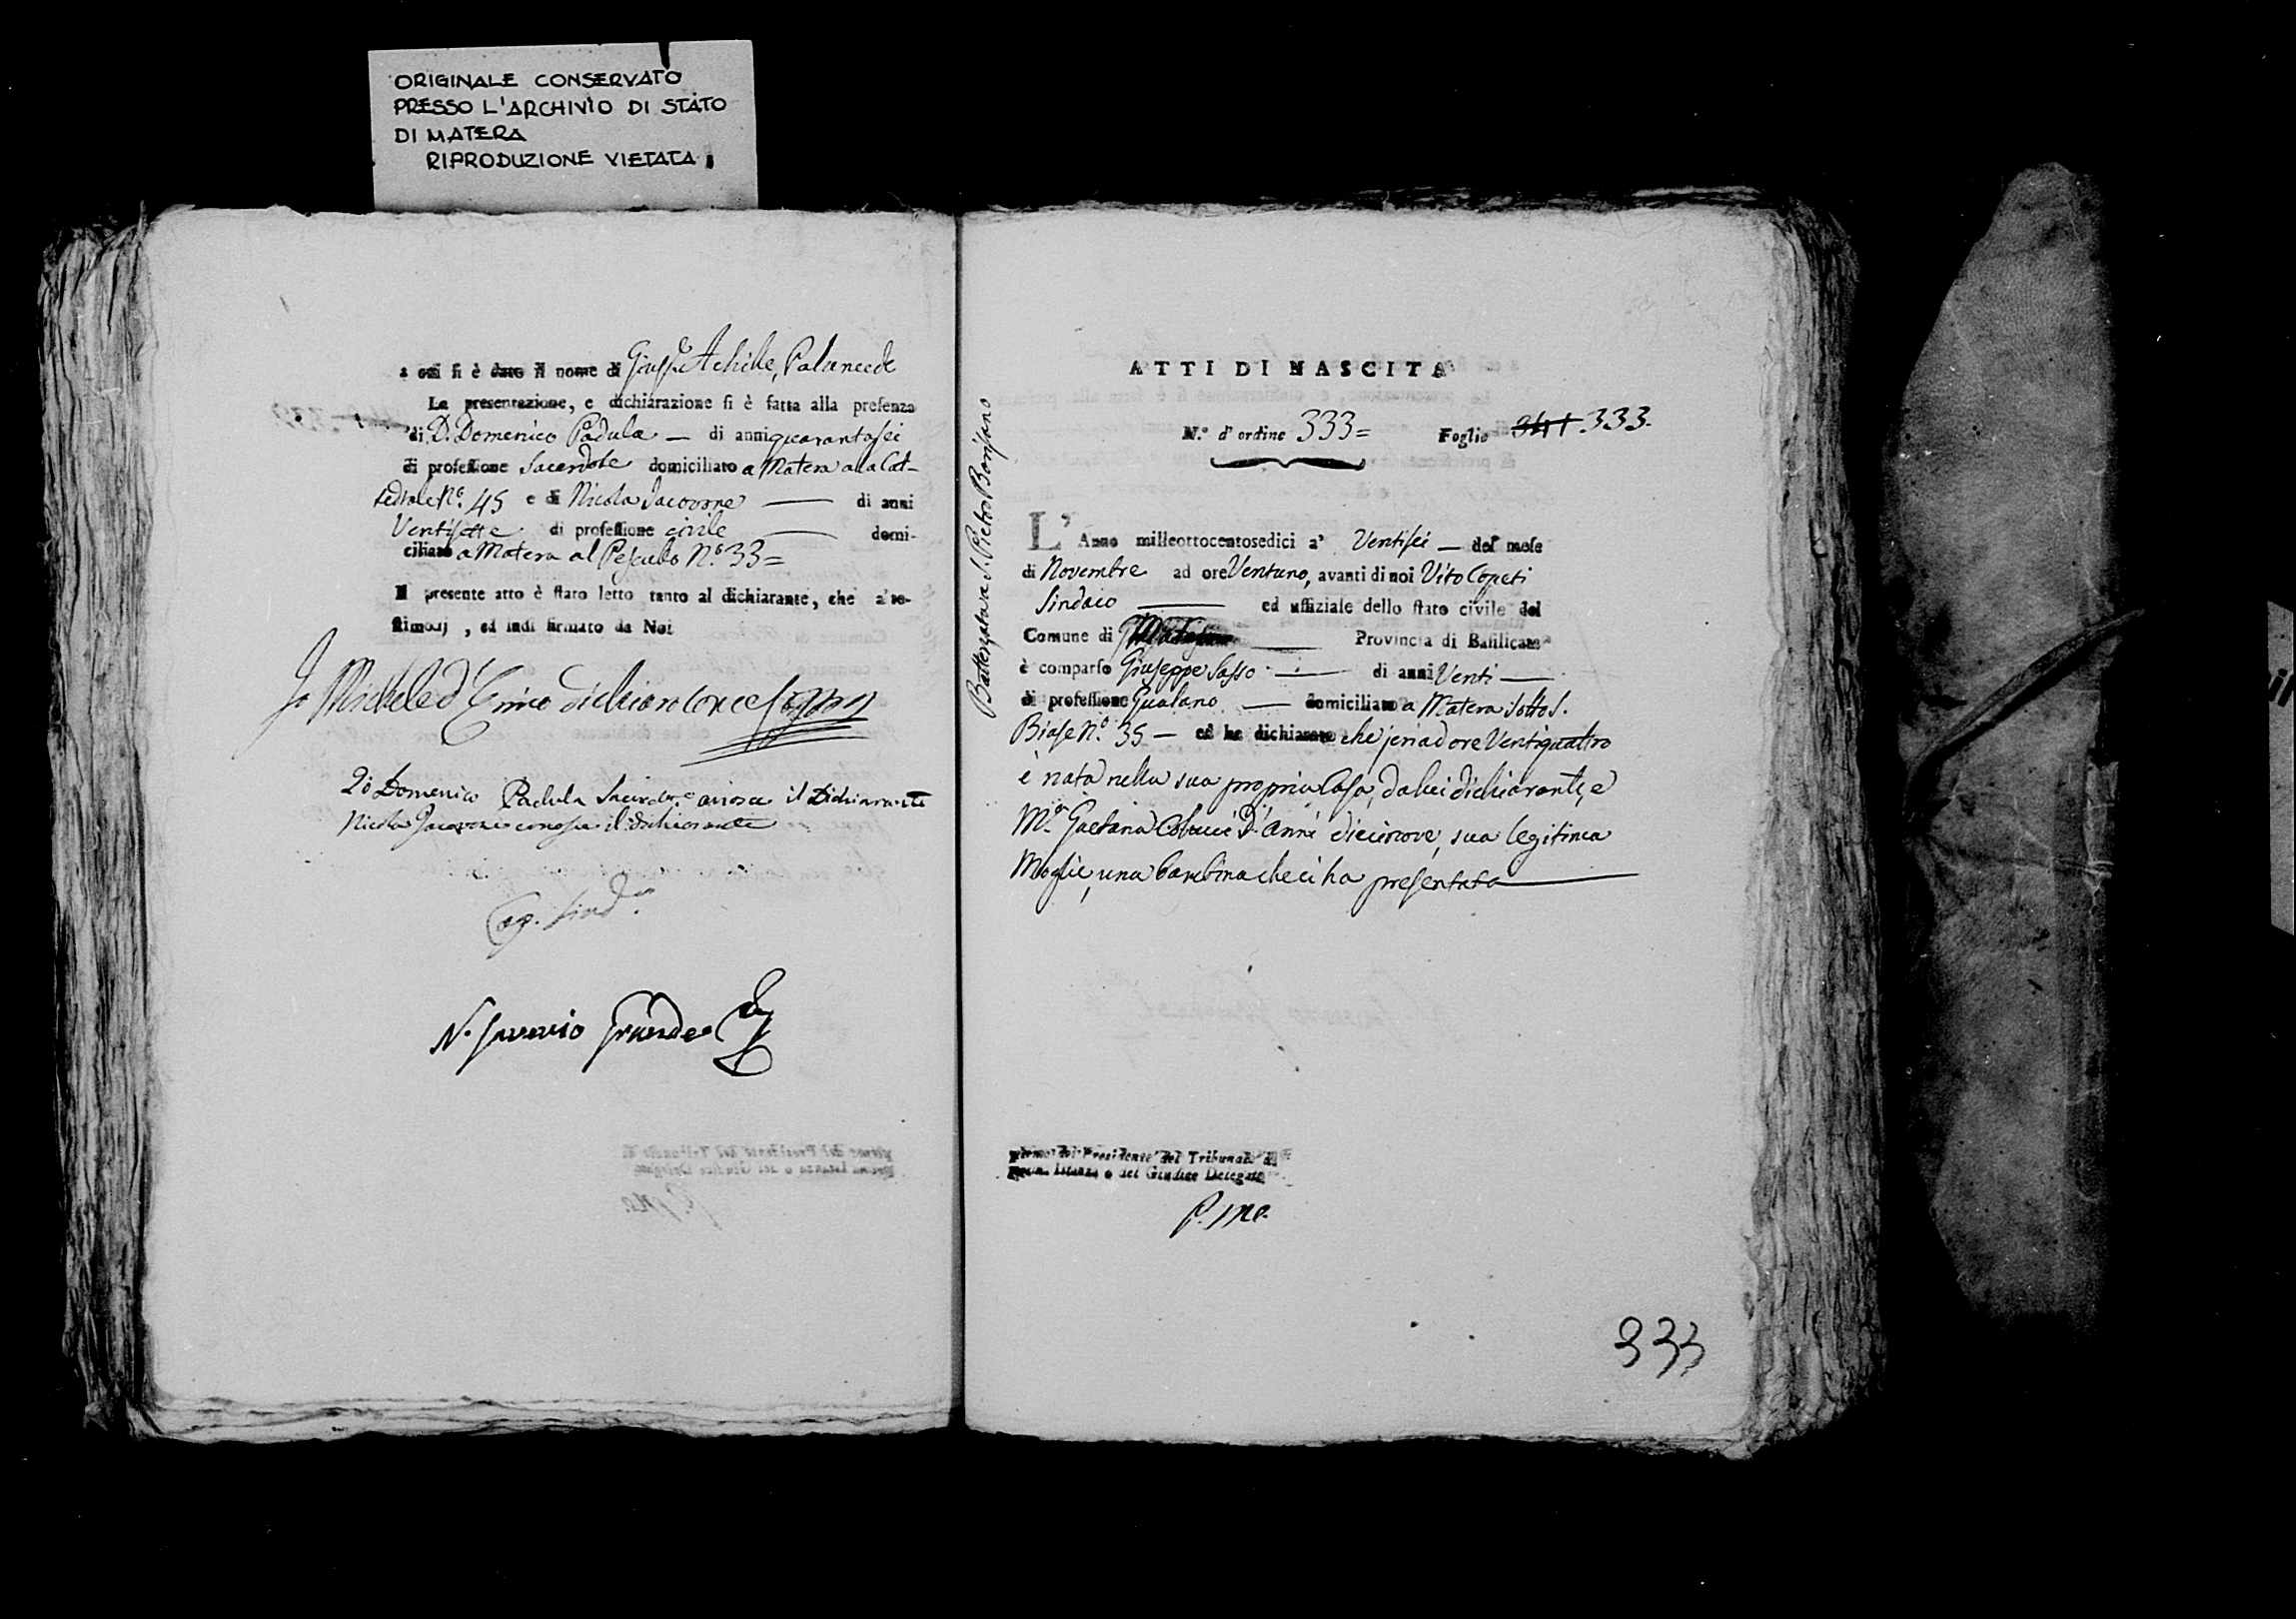 ORIGINALE CONSERVATO
PRESSO L'ARCHIVIO DI STATO
DI MATERA
RIPRODUZIONE VIETATA
a cui si è dato il nome di Giusp.e Achille, Palamede
La presentazione, e dichiarazione si è fatta alla presenza
di D. Domenico Padula — di anni quarantasei
di professione Sacerdote domiciliato a Matera alla Cat-
tedrale N.o 45 e di Nicola Jacovone — di anni
Ventisette di professione civile — domi-
ciliato a Matera al Pesculo N.o 33=
Il presente atto è stato letto tanto al dichiarante, che a' te-
stimonj, ed indi firmato da Noi
Io Michele d'
Io Domenico Padula Sacerdote conosce il Dichiarante
Nicola Jacovone conosce il dichiarante
Cop. Sind.o
N. Saverio
Battezzata a S. Pietro Barisano
ATTI DI NASCITA
N.o d'ordine 333= Foglio 341 333.
L'Anno milleottocentosedici a' Ventisei — del mese
di Novembre ad ore Ventuno, avanti di noi Vito Copeti
Sindaco — ed uffiziale dello stato civile del
Comune di — Provincia di Basilicata
è comparso Giuseppe Sasso — di anni Venti —
di professione Gualano — domiciliato a Matera sotto S.
Biase N.o 35 — ed ha dichiarato che jeri ad ore Ventiquattro
è nata nella sua propria Casa, da lui dichiarante, e
M.a Gaetana Colucci D'anni diecinove, sua legitima
Moglie, una bambina che ci ha presentata
Firma del Presidente del Tribunale di
prima Istanza o del Giudice Delegato
333